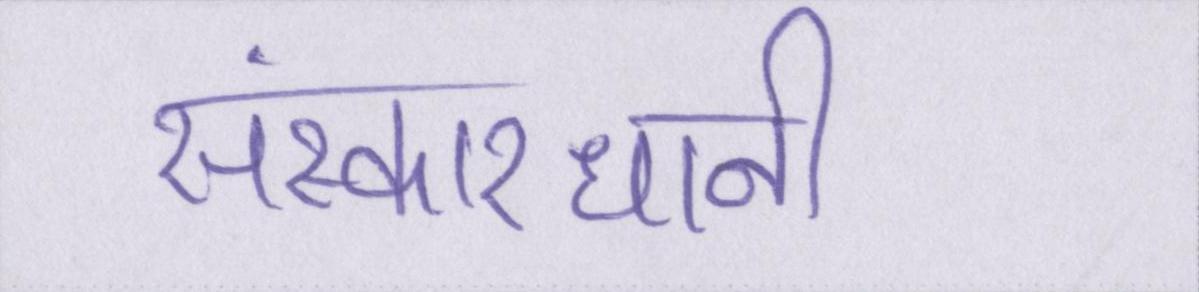 संस्कारधानी